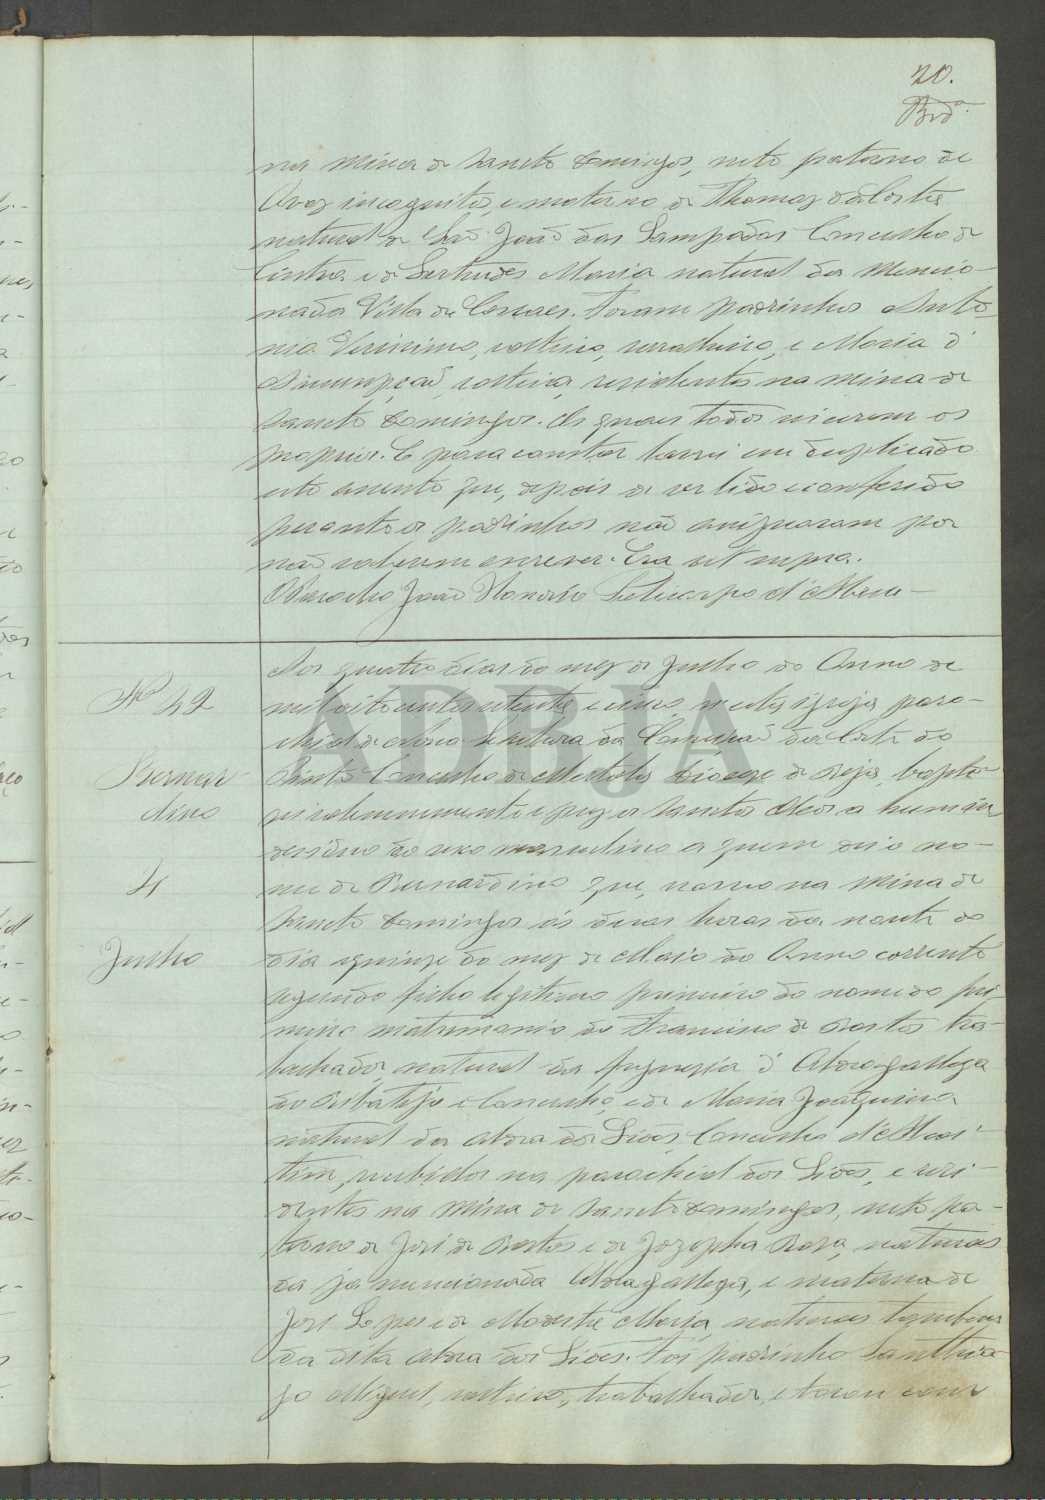 20.
na mina de Sancto Domingos, neto paterno de
Avoz incognitos, e materno de Thomaz da Costa
natural de São João das Lampadas Concelho de
Cintra e de Gertrudes Maria natural da mencio-
nada Villa de Foram padrinhos Anto-
nio Verissimo, solteiro, e Maria d'
Assumpção, solteira, residentes na mina de
Sancto Domingos. Os quaes todos sei serem os
proprios. E para constar lavrei em duplicado
este assento que, depois de ser lido e conferido
perante os padrinhos não assignaram por
não saberem escrever. Era ut supra.
O Parocho João Policarpo d'Abreu
Nº 42
Bernar
dino
4
Junho
Aos quatro dias do mez de Junho do Anno de
mil oito centos oitenta e cinco nesta igreja paro-
chial de Nossa Senhora da Conceição da Corte do
Pinto Concelho de Mertola Diocese de Beja, bapti-
sei solemnemente e puz os Sanctos Oleos a hum in
dividuo do sexo masculino a quem dei o no-
me de Bernardino que, nasceo na mina de
Sancto Domingos ás duas horas da noute do
dia quinze do mez de Maio do Anno corrente
segundo filho legitimo primeiro do nome do pri-
meiro matrimonio de Francisco de Bastos tra-
balhador, natural da freguesia d'Aldeagallega
do Ribatejo e Concelho, e de Maria Joaquina
natural da Aldea dos Concelho d'
recebidos na parochial dos e resi-
dentes na mina de Sancto Domingos, neto pa-
terno de José de Bastos e de Jozepha Rosa, naturaes
da ja mencionada Aldeagallega, e materno de
José Lopes e de Maria, naturaes tambem
da dita Aldea dos Foi padrinho Santhia-
go Miguel, solteiro, trabalhador, e tocou com
ADBJA